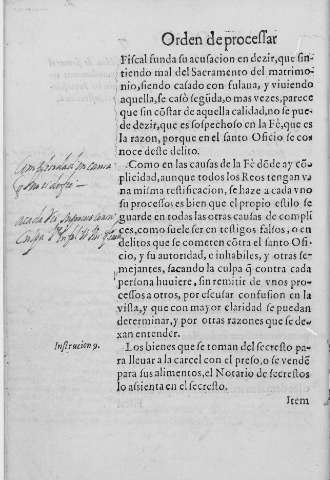 Orden de processar
Fiscal funda su acusacion en dezir, que sin-
tiendo mal del Sacramento del matrimo-
nio, siendo casado con fulana, y viuiendo
aquella, se casò segũda, o mas vezes, parece
que sin cõstar de aquella calidad, no se pue-
de dezir, que es sospechoso en la Fè, que es
la razon, porque en el santo Oficio se co-
noce deste delito.
Como en las causas de la Fè dõde ay cõ-
plicidad, aunque todos los Reos tengan v-
na misma testificacion, se haze a cada vno
su processo: es bien que el propio estilo se
guarde en todas las otras causas de compli
ces, como suele ser en testigos falsos, o en
delitos que se cometen cõtra el santo Ofi-
cio, y su autoridad, e inhabiles, y otras se-
mejantes, sacando la culpa q̃ contra cada
persona huuiere, sin remitir de vnos pro-
cessos a otros, por escusar confusion en la
vista, y que con mayor claridad se puedan
determinar, y por otras razones que se de-
xan entender.
Instrucion 9.
Los bienes que se toman del secresto pa-
ra lleuar a la carcel con el preso, o se vendẽ
para sus alimentos, el Notario de secrestos
lo assienta en el secresto.
Item